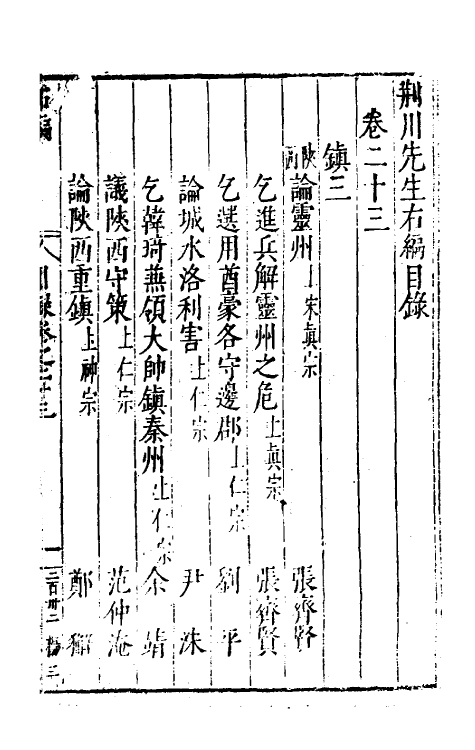 荆川先生右編目錄
卷二十三
鎮三
陝西論靈州上宋真宗 張齊賢
乞進兵解靈州之危上真宗 張齊賢
乞選用酋豪各守邊郡上仁宗 劉平
論城水洛利害上仁宗 尹洙
乞韓琦兼領大帥鎮秦州上仁宗 余靖
議陝西守策上仁宗 范仲淹
論陝西重鎮上神宗 鄭獬
右編 目錄卷之廿三 一